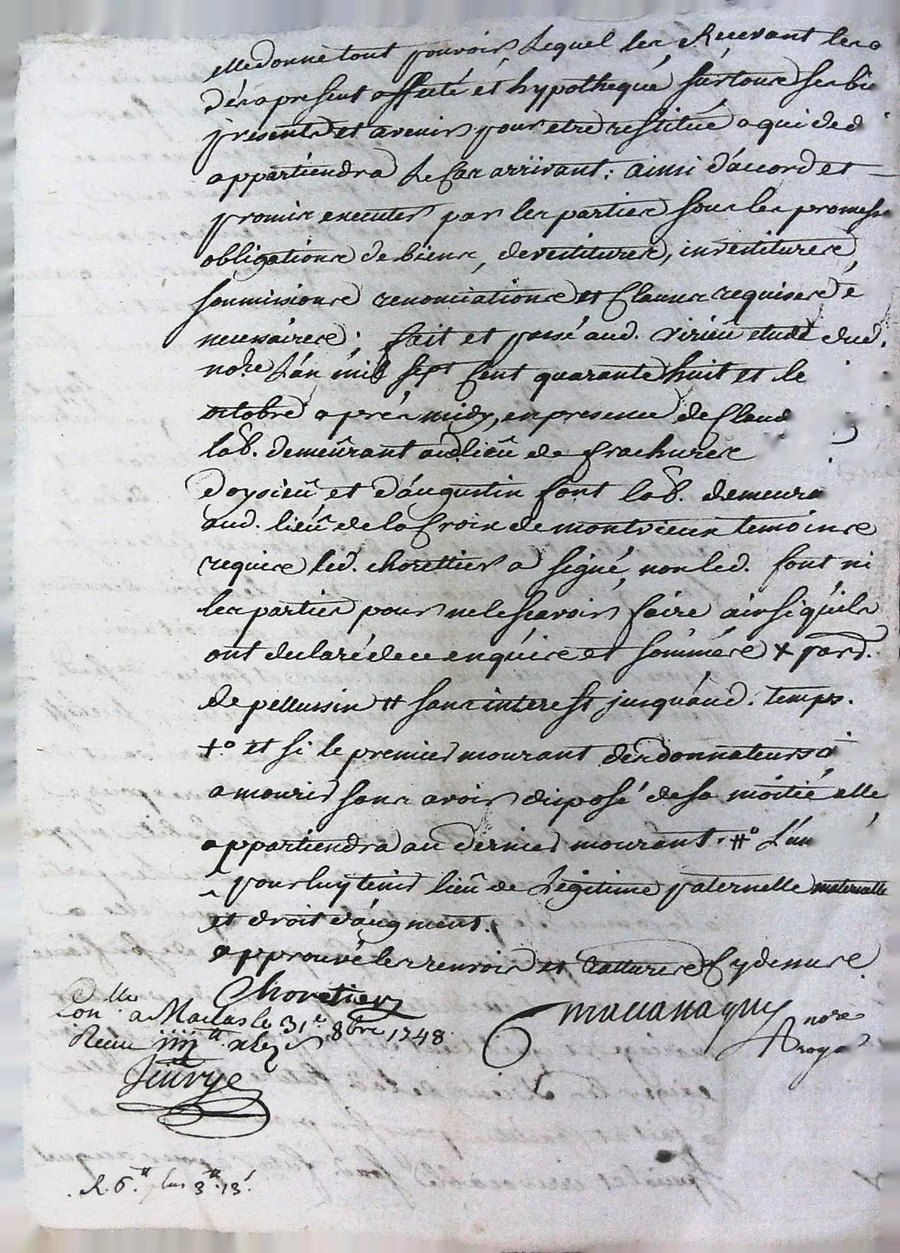 elle donne tout pouvoir, lequel les Recevant les a
des apresent affecté et hypothequé sur tous ses bie
presents et avenir pour etre restitué a qui de d
appartiendra le cas arrivant: ainsi d'accord et
promis executer par les parties sous les promess
obligations de biens, devestitures, investitures,
soumissions renonciations et clauses requises é
necessaires; fait et passé aud. virieu etude dud.
no.re L'an mil sept cent quarante huit et le
octobre apres midy, en presence de Claud
lab. demeurant aud. lieu de
Doysieu et d'augustin font lab. demeura
aud. lieu de la Croix de montvieux temoins
requis led. chorettier a signé, non led. font ni
les parties pour ne le scavoir faire ainsi quils
ont declaré de ce enquis et sommés + pard.
de pellussin # sans interest jusquaud. temps.
+° et si le premier mourant des donnateurs
a mourir sans avoir disposé de sa moitié elle
appartiendra au dernier mourant. #° L'un
pour luy tenir lieu de Legitime paternelle maternelle
et droit d'augment.
approuvé les renvois et ratures cy dessus
Choretier
no.re
Con.lle a Maclas le 31.e 8bre 1748
Receu
royal
R. 6.tt plus 3.tt 13.s